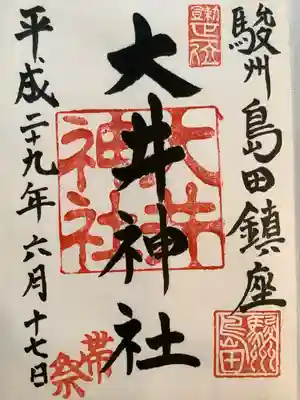 駿州島田鎮座
大井神社
平成二十九年六月十七日
大井神社
駿州島田
帯祭